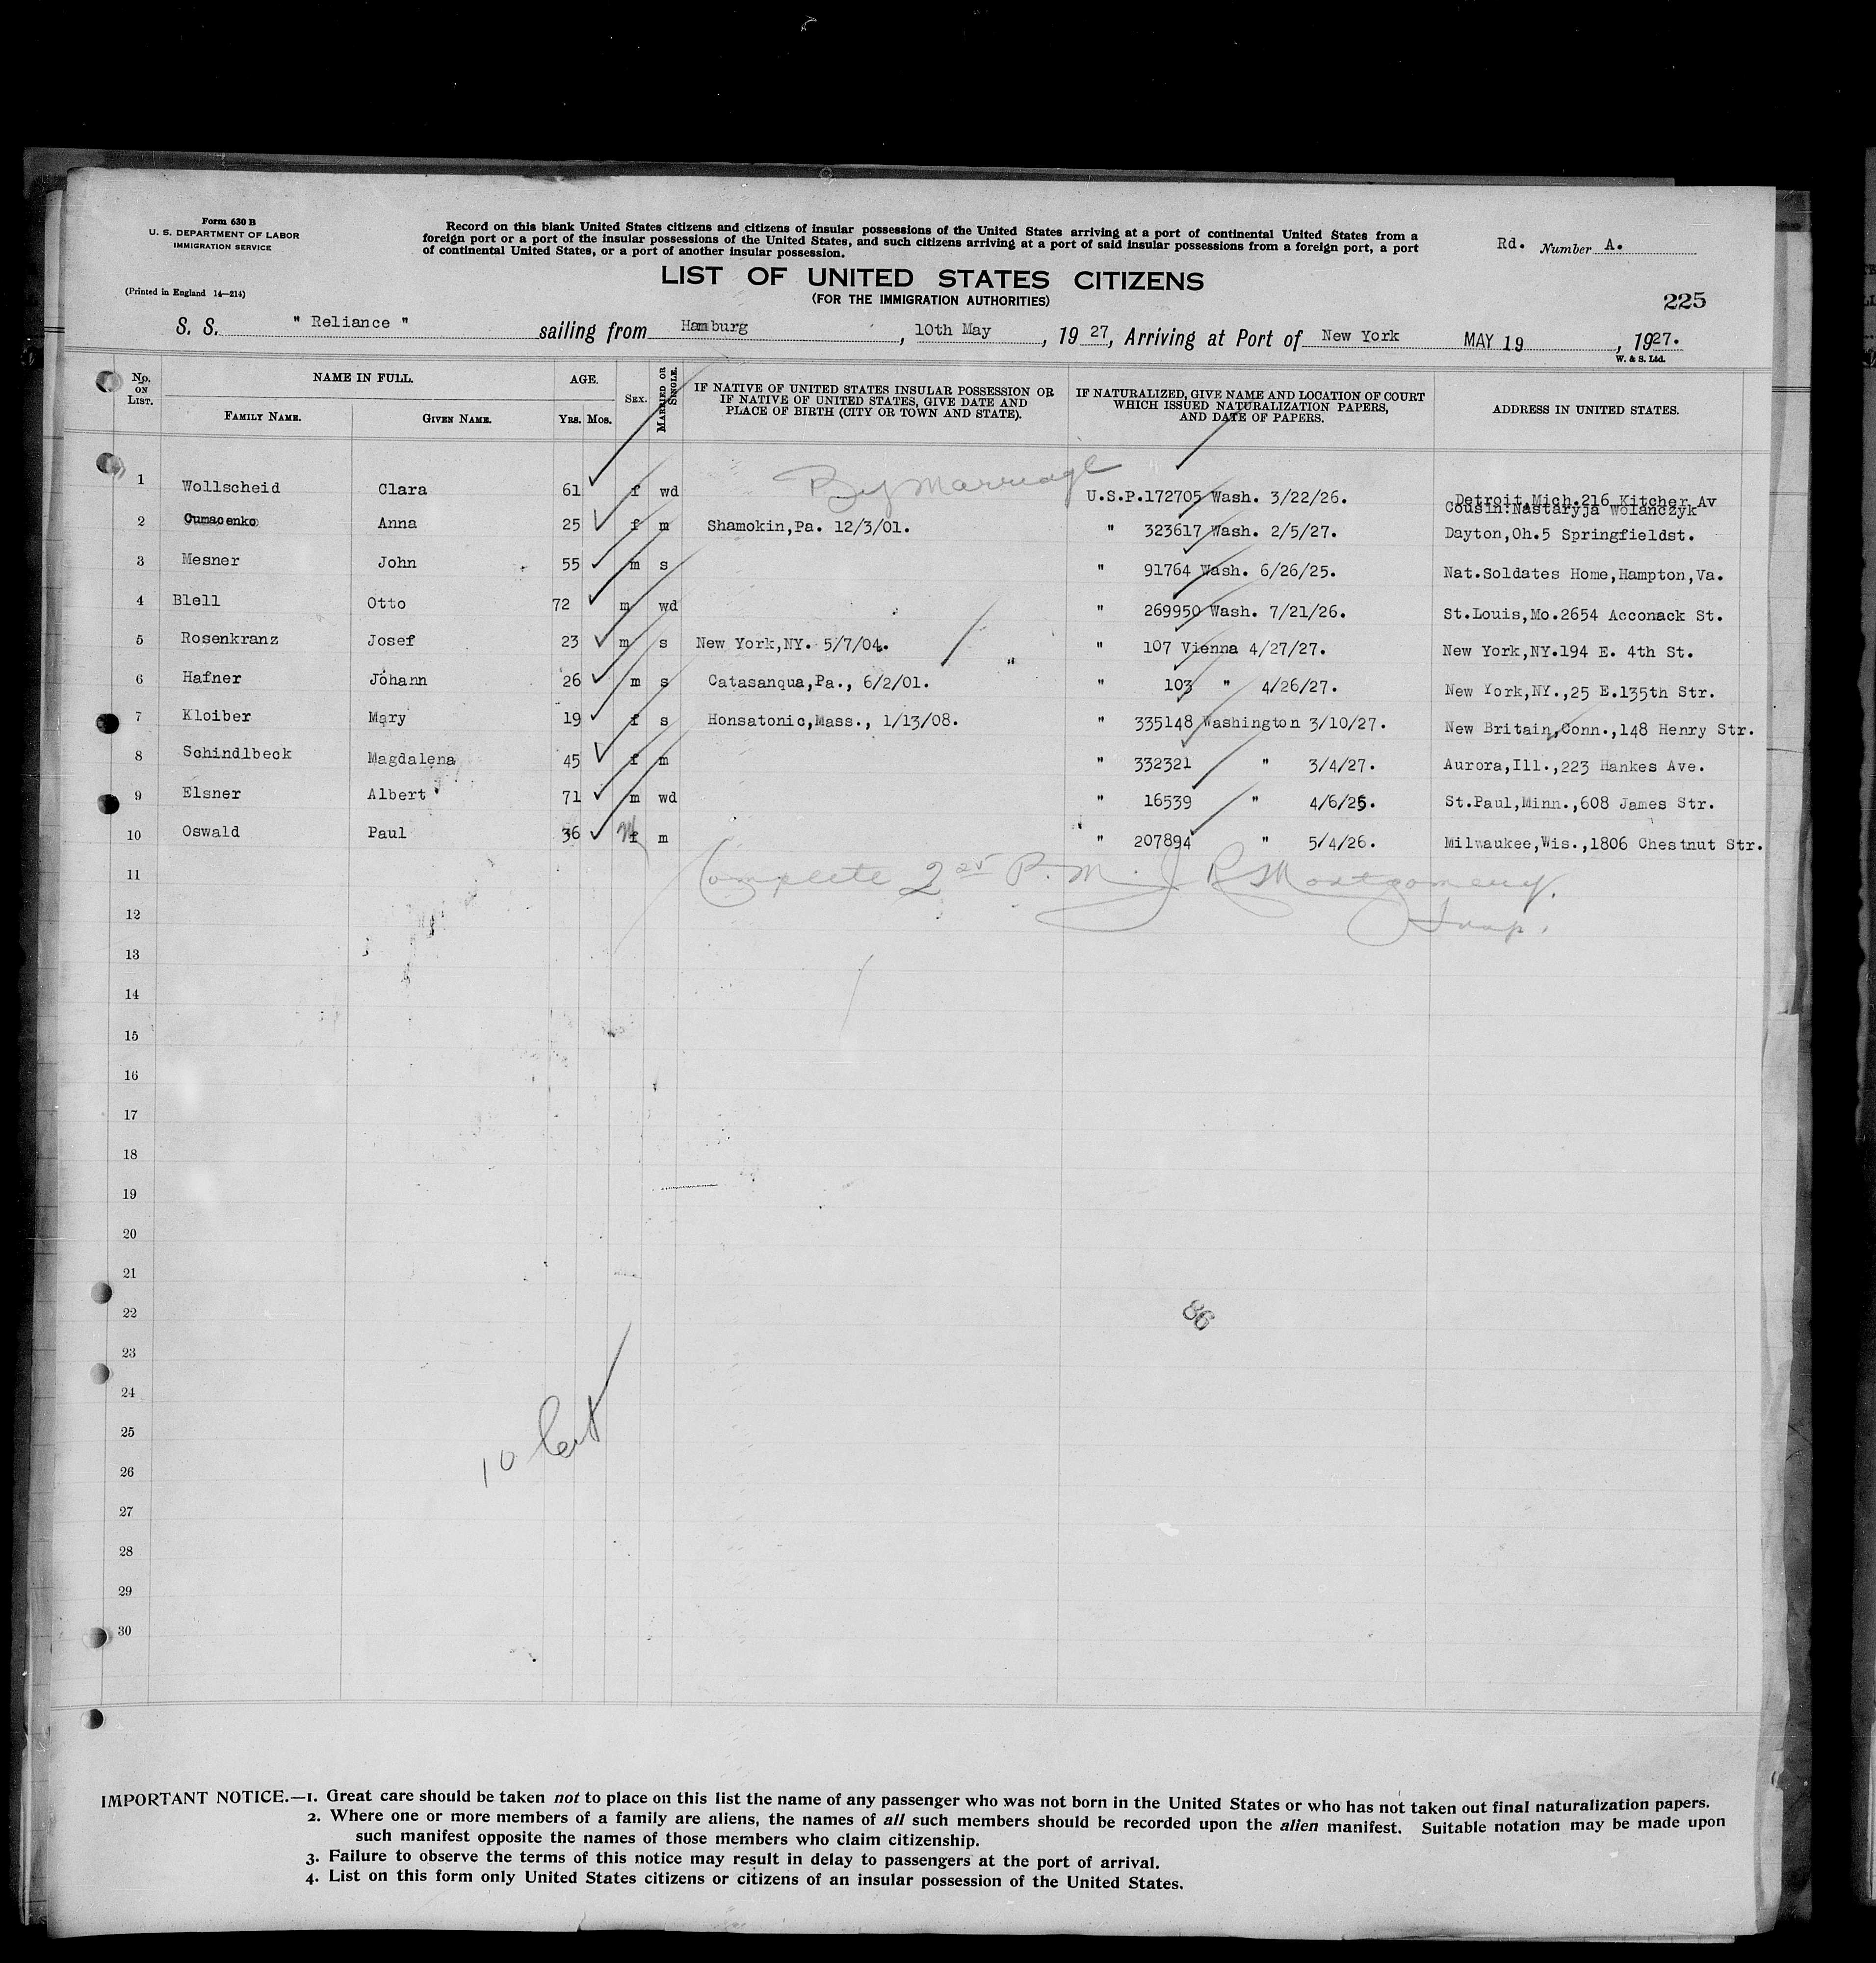 Form 630 B
U. S. DEPARTMENT OF LABOR
IMMIGRATION SERVICE
(Printed in England 14—214)
Record on this blank United States citizens and citizens of insular possessions of the United States arriving at a port of continental United States from a
foreign port or a port of the insular possessions of the United States, and such citizens arriving at a port of said insular possessions from a foreign port, a port
of continental United States, or a port of another insular possession.
Rd. Number A.
LIST OF UNITED STATES CITIZENS
(FOR THE IMMIGRATION AUTHORITIES)
225
S. S. " Reliance " sailing from Hamburg, 10th May, 19 27, Arriving at Port of New York MAY 19, 1927.
W. & S. Ltd.
No. ON LIST. NAME IN FULL. AGE. SEX. MARRIED OR SINGLE. IF NATIVE OF UNITED STATES INSULAR POSSESSION OR IF NATIVE OF UNITED STATES, GIVE DATE AND PLACE OF BIRTH (CITY OR TOWN AND STATE). IF NATURALIZED, GIVE NAME AND LOCATION OF COURT WHICH ISSUED NATURALIZATION PAPERS, AND DATE OF PAPERS. ADDRESS IN UNITED STATES.
FAMILY NAME. GIVEN NAME. YRS. MOS.
1 Wollscheid Clara 61 f wd By Marriage U.S.P.172705 Wash. 3/22/26. Detroit Mich.216 Kitcher Av
Cousin:Nastaryja Wolanczyk
2 Anna 25 f m Shamokin,Pa. 12/3/01. " 323617 Wash. 2/5/27. Dayton,Oh.5 Springfieldst.
3 Mesner John 55 m s " 91764 Wash. 6/26/25. Nat.Soldates Home,Hampton,Va.
4 Blell Otto 72 m wd " 269950 Wash. 7/21/26. St.Louis,Mo.2654 Acconack St.
5 Rosenkranz Josef 23 m s New York,NY. 5/7/04. " 107 Vienna 4/27/27. New York,NY.194 E. 4th St.
"
6 Hafner Johann 26 m s Catasanqua,Pa., 6/2/01. " 103 " 4/26/27. New York,NY.,25 E.135th Str.
7 Kloiber Mary 19 f s Honsatonic,Mass., 1/13/08. " 335148 Washington 3/10/27. New Britain,Conn.,148 Henry Str.
8 Schindlbeck Magdalena 45 f m " 332321 " 3/4/27. Aurora,Ill.,223 Hankes Ave.
9 Elsner Albert 71 m wd " 16539 " 4/6/25. St.Paul,Minn.,608 James Str.
10 Oswald Paul 36 M f m " 207894 " 5/4/26. Milwaukee,Wis.,1806 Chestnut Str.
11 Complete 2 25 P.M. J R Montgomery.
12 Insp.
13
14
15
16
17
18
19
20
21
22 86
23
24
25 10
26
27
28
29
30
IMPORTANT NOTICE.—1. Great care should be taken not to place on this list the name of any passenger who was not born in the United States or who has not taken out final naturalization papers.
2. Where one or more members of a family are aliens, the names of all such members should be recorded upon the alien manifest. Suitable notation may be made upon
such manifest opposite the names of those members who claim citizenship.
3. Failure to observe the terms of this notice may result in delay to passengers at the port of arrival.
4. List on this form only United States citizens or citizens of an insular possession of the United States.